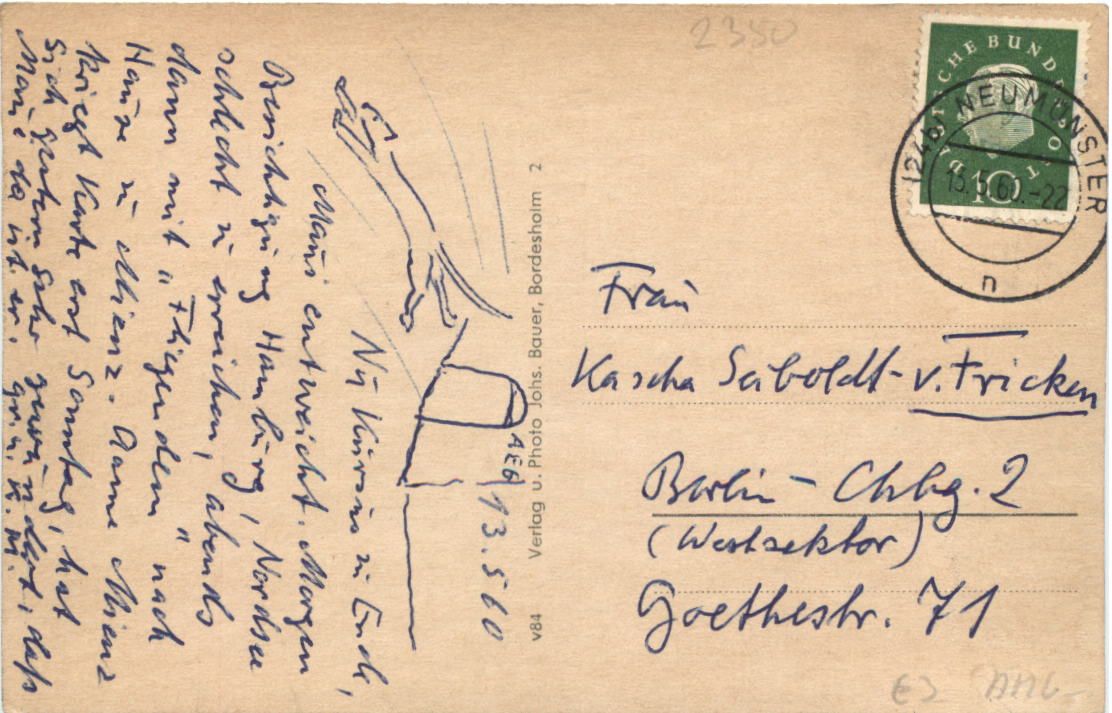 2350
DEUTSCHE BUNDESPOST
10
(24b) NEUMÜNSTER
13.5.60.-22
n
13.5.60
AEG
Nu Kursus zu Ende,
Maus entweicht. Morgen
Besichtigung Hamburg, Nordsee
schlecht zu erreichen, abends
dann mit "Fliegendem" nach
Hause zu Mienz. Arme Mienz
kriegt Karte erst Sonntag, hat
sich gestern sehr gewundert, daß
Maus da ist er. Gru. K. M.
Verlag u. Photo Johs. Bauer, Bordesholm 2
v84
Frau
Kascha Seiboldt-v. Fricken
Berlin - Chbg. 2
(Westsektor)
Goethestr. 71
€3